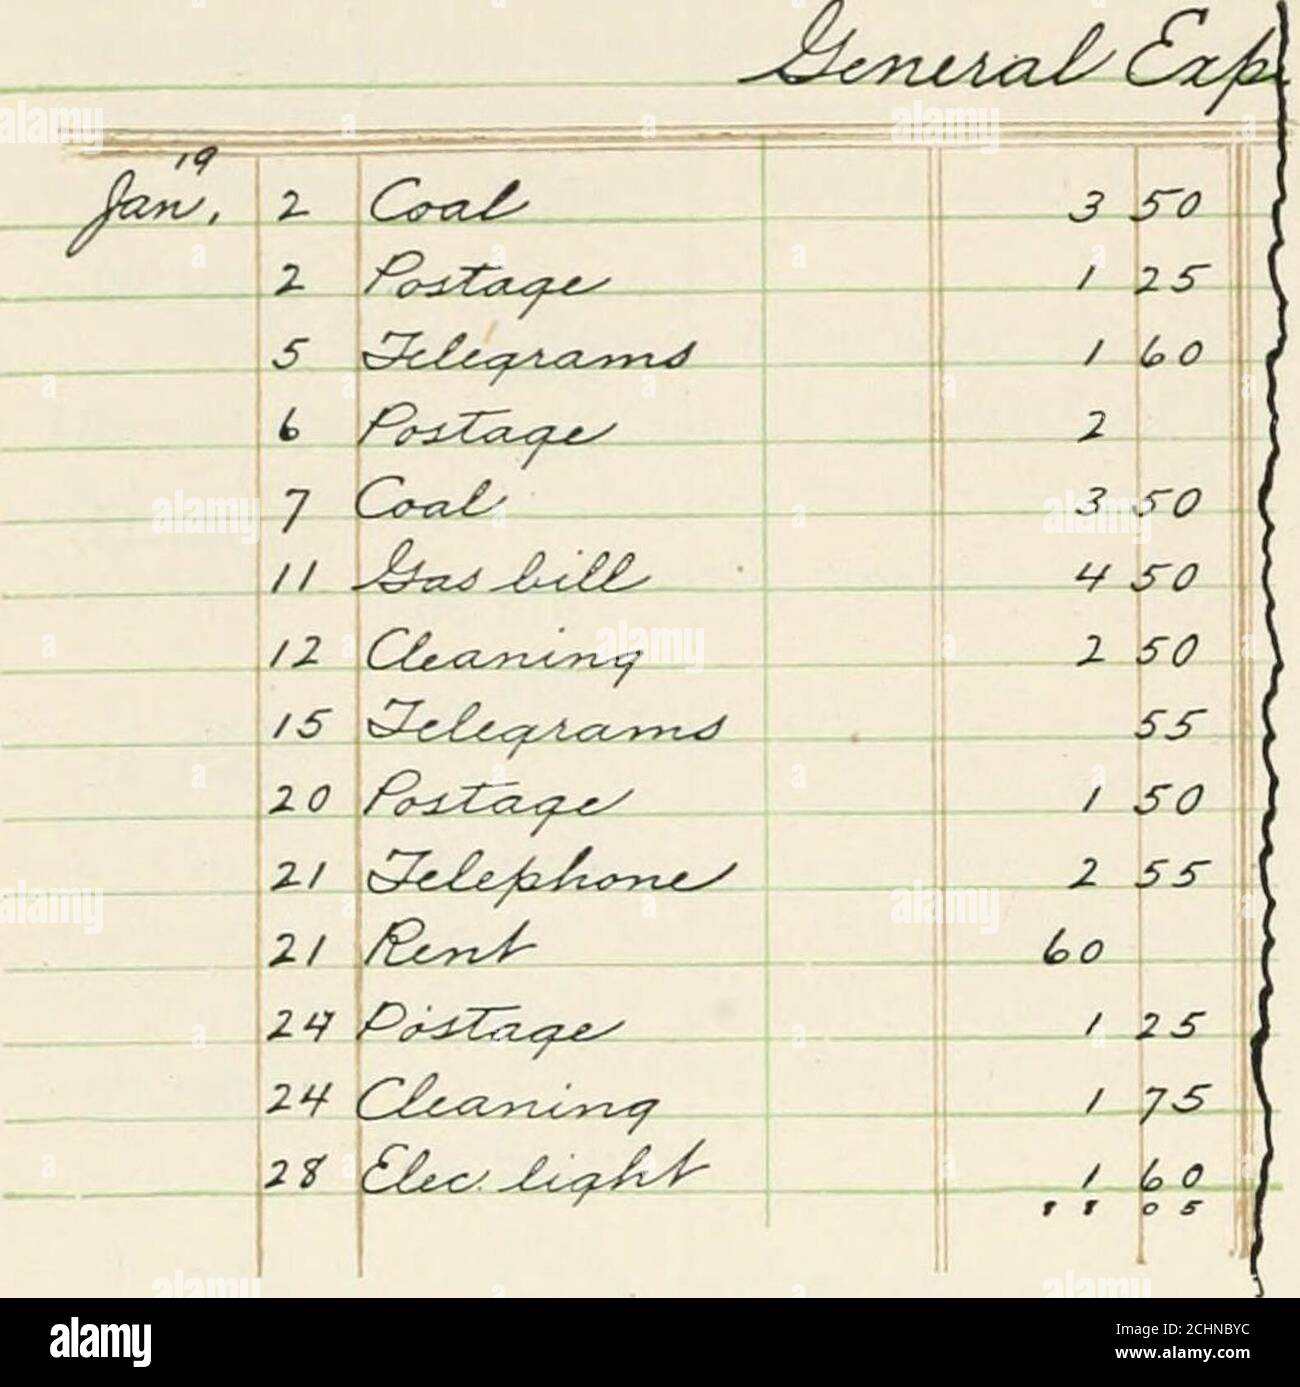 General Exp
19
Jan. 2 Coal 3 50
2 Postage 1 25
5 Telegrams 1 60
6 Postage 2
7 Coal 3 50
11 Gas bill 4 50
12 Cleaning 2 50
15 Telegrams 55
20 Postage 1 50
21 Telephone 2 55
21 Rent 60
24 Postage 1 25
24 Cleaning 1 75
28 Elec. light 1 60
88 05
alamy
Image ID: 2CHNBYC
www.alamy.com